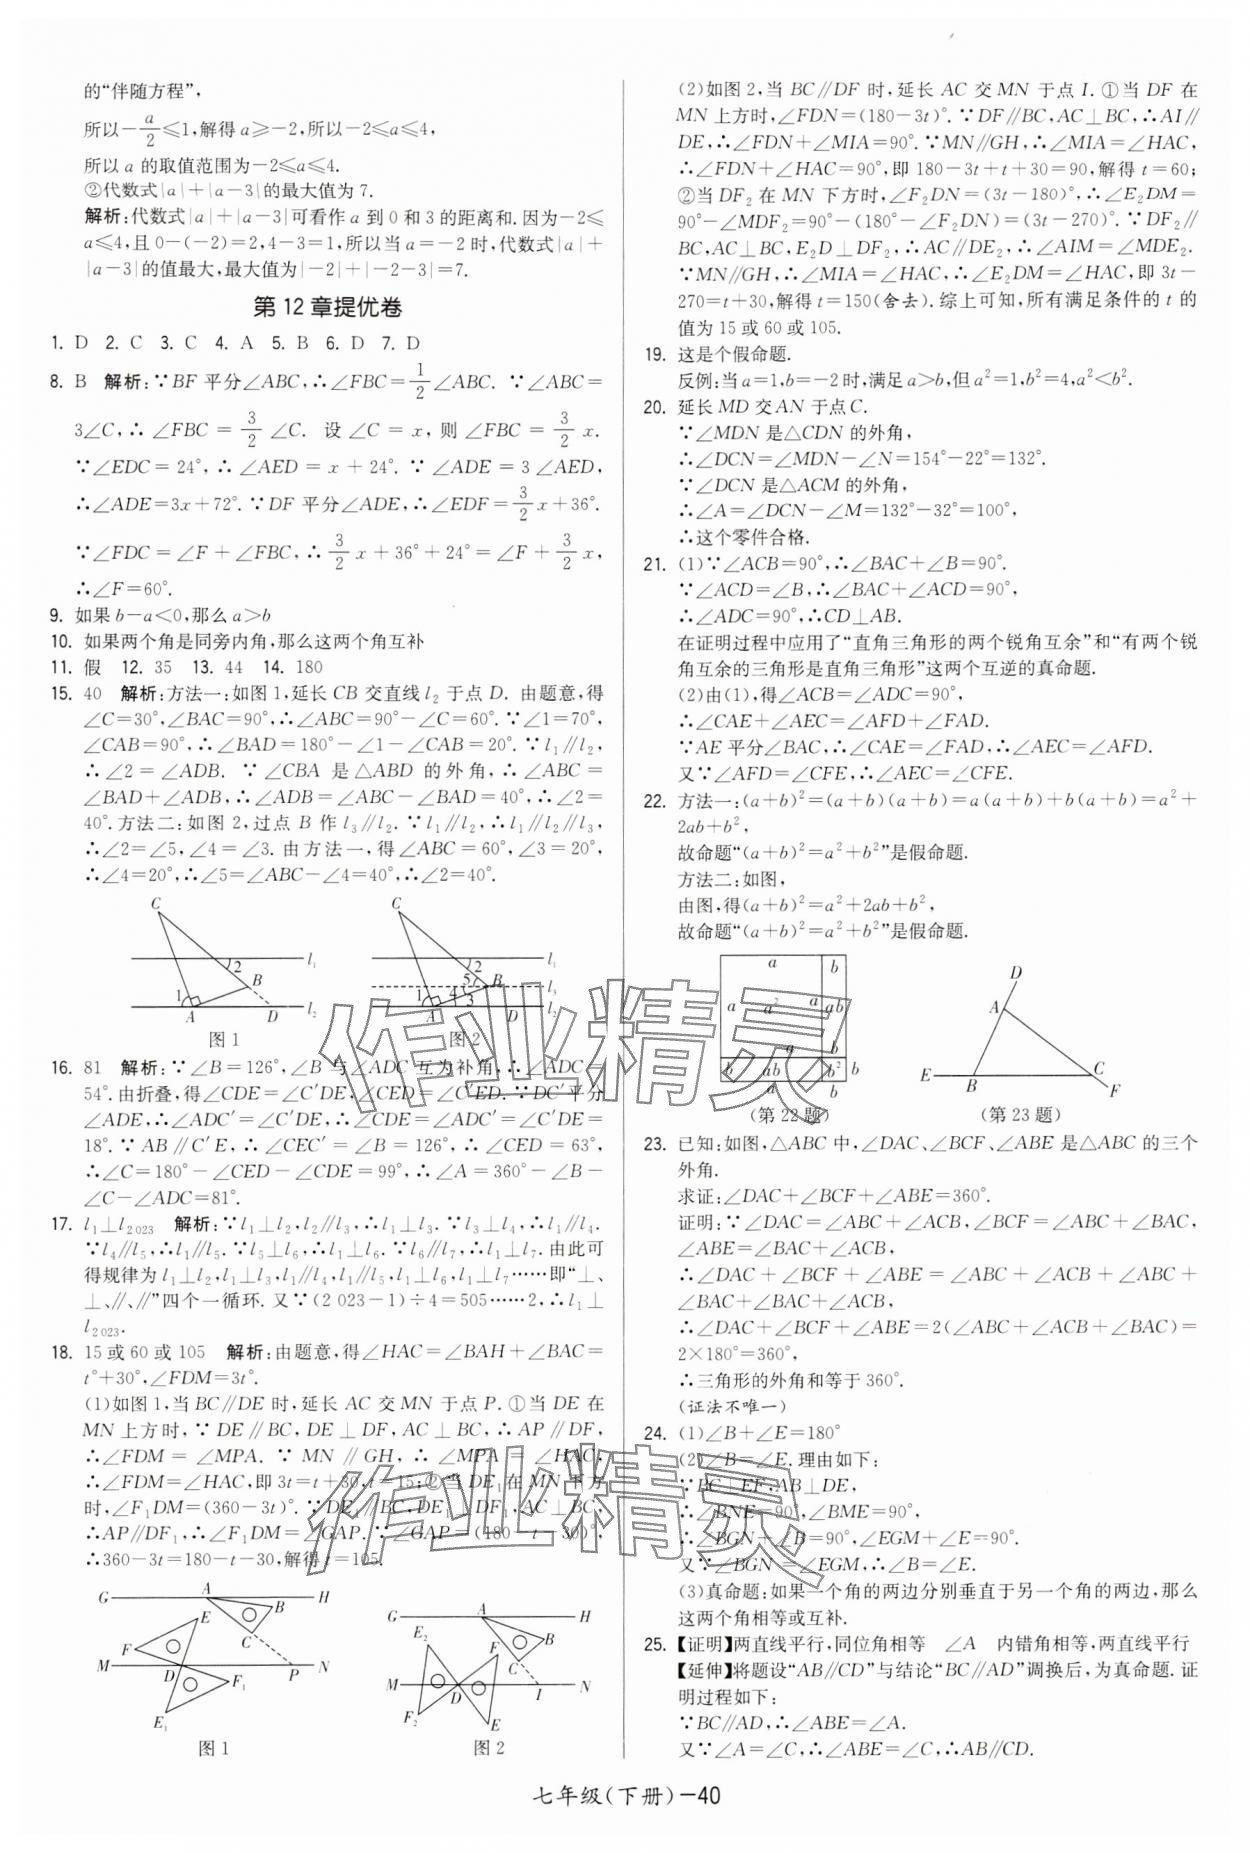 的“伴随方程”,
所以-a/2≤1,解得a≥-2,所以-2≤a≤4,
所以 a 的取值范围为-2≤a≤4.
②代数式|a|+|a-3|的最大值为 7.
解析:代数式|a|+|a-3|可看作 a 到 0 和 3 的距离和.因为-2≤
a≤4,且 0-(-2)=2,4-3=1,所以当 a=-2 时,代数式|a|+
|a-3|的值最大,最大值为|-2|+|-2-3|=7.
第 12 章提优卷
1. D 2. C 3. C 4. A 5. B 6. D 7. D
8. B 解析:∵BF 平分∠ABC,∴∠FBC=1/2∠ABC. ∵∠ABC=
3∠C,∴∠FBC=3/2∠C. 设∠C=x,则∠FBC=3/2x.
∵∠EDC=24°,∴∠AED=x+24°. ∵∠ADE=3∠AED,
∴∠ADE=3x+72°. ∵DF 平分∠ADE,∴∠EDF=3/2x+36°.
∵∠FDC=∠F+∠FBC,∴3/2x+36°+24°=∠F+3/2x,
∴∠F=60°.
9. 如果 b-a<0,那么 a>b
10. 如果两个角是同旁内角,那么这两个角互补
11. 假 12. 35 13. 44 14. 180
15. 40 解析:方法一:如图 1,延长 CB 交直线 l₂ 于点 D. 由题意,得
∠C=30°,∠BAC=90°,∴∠ABC=90°-∠C=60°. ∵∠1=70°,
∠CAB=90°,∴∠BAD=180°-∠1-∠CAB=20°. ∵l₁∥l₂,
∴∠2=∠ADB. ∵∠CBA 是△ABD 的外角,∴∠ABC=
∠BAD+∠ADB,∴∠ADB=∠ABC-∠BAD=40°,∴∠2=
40°.方法二:如图 2,过点 B 作 l₃∥l₂. ∵l₁∥l₂,∴l₁∥l₂∥l₃,
∴∠2=∠5,∠4=∠3. 由方法一,得∠ABC=60°,∠3=20°,
∴∠4=20°,∴∠5=∠ABC-∠4=40°,∴∠2=40°.
C 2 l₁ B 1 A D l₂
图 1
C 2 l₁ 5 B l₃ 1 4 3 A D l₂
图 2
16. 81 解析:∵∠B=126°,∠B 与∠ADC 互为补角,∴∠ADC=
54°.由折叠,得∠CDE=∠C′DE,∠CED=∠C′ED. ∵DC′平分
∠ADE,∴∠ADC′=∠C′DE,∴∠CDE=∠ADC′=∠C′DE=
18°. ∵AB∥C′E,∴∠CEC′=∠B=126°,∴∠CED=63°,
∴∠C=180°-∠CED-∠CDE=99°,∴∠A=360°-∠B-
∠C-∠ADC=81°.
17. l₁⊥l₂₀₂₃ 解析:∵l₁⊥l₂,l₂∥l₃,∴l₁⊥l₃. ∵l₃⊥l₄,∴l₁∥l₄.
∵l₄∥l₅,∴l₁∥l₅. ∵l₅⊥l₆,∴l₁⊥l₆. ∵l₆∥l₇,∴l₁⊥l₇. 由此可
得规律为 l₁⊥l₂,l₁⊥l₃,l₁∥l₄,l₁∥l₅,l₁⊥l₆,l₁⊥l₇……即“⊥、
⊥、∥、∥”四个一循环. 又∵(2 023-1)÷4=505……2,∴l₁⊥
l₂₀₂₃.
18. 15 或 60 或 105 解析:由题意,得∠HAC=∠BAH+∠BAC=
t°+30°,∠FDM=3t°.
(1)如图 1,当 BC∥DE 时,延长 AC 交 MN 于点 P. ①当 DE 在
MN 上方时,∵DE∥BC,DE⊥DF,AC⊥BC,∴AP∥DF,
∴∠FDM=∠MPA. ∵MN∥GH,∴∠MPA=∠HAC,
∴∠FDM=∠HAC,即 3t=t+30,t=15;②当 DE₁在 MN 下方
时,∠F₁DM=(360-3t)°. ∵DE₁∥BC,DE₁⊥DF₁,AC⊥BC,
∴AP∥DF₁,∴∠F₁DM=∠GAP. ∵∠GAP=(180-t-30)°,
∴360-3t=180-t-30,解得 t=105.
G A H B E C F M D P N F₁ E₁
图 1
G A H E₂ F B C M D I N F₂ E
图 2
(2)如图 2,当 BC∥DF 时,延长 AC 交 MN 于点 I. ①当 DF 在
MN 上方时,∠FDN=(180-3t)°. ∵DF∥BC,AC⊥BC,∴AI∥
DE,∴∠FDN+∠MIA=90°. ∵MN∥GH,∴∠MIA=∠HAC,
∴∠FDN+∠HAC=90°,即 180-3t+t+30=90,解得 t=60;
②当 DF₂ 在 MN 下方时,∠F₂DN=(3t-180)°,∴∠E₂DM=
90°-∠MDF₂=90°-(180°-∠F₂DN)=(3t-270)°. ∵DF₂∥
BC,AC⊥BC,E₂D⊥DF₂,∴AC∥DE₂,∴∠AIM=∠MDE₂.
∵MN∥GH,∴∠MIA=∠HAC,∴∠E₂DM=∠HAC,即 3t-
270=t+30,解得 t=150(舍去).综上可知,所有满足条件的 t 的
值为 15 或 60 或 105.
19. 这是个假命题.
反例:当 a=1,b=-2 时,满足 a>b,但 a²=1,b²=4,a²<b².
20. 延长 MD 交 AN 于点 C.
∵∠MDN 是△CDN 的外角,
∴∠DCN=∠MDN-∠N=154°-22°=132°.
∵∠DCN 是△ACM 的外角,
∴∠A=∠DCN-∠M=132°-32°=100°,
∴这个零件合格.
21. (1)∵∠ACB=90°,∴∠BAC+∠B=90°.
∵∠ACD=∠B,∴∠BAC+∠ACD=90°,
∴∠ADC=90°,∴CD⊥AB.
在证明过程中应用了“直角三角形的两个锐角互余”和“有两个锐
角互余的三角形是直角三角形”这两个互逆的真命题.
(2)由(1),得∠ACB=∠ADC=90°,
∴∠CAE+∠AEC=∠AFD+∠FAD.
∵AE 平分∠BAC,∴∠CAE=∠FAD,∴∠AEC=∠AFD.
又∵∠AFD=∠CFE,∴∠AEC=∠CFE.
22. 方法一:(a+b)²=(a+b)(a+b)=a(a+b)+b(a+b)=a²+
2ab+b²,
故命题“(a+b)²=a²+b²”是假命题.
方法二:如图,
由图,得(a+b)²=a²+2ab+b²,
故命题“(a+b)²=a²+b²”是假命题.
a b a a² a ab a b b ab b² b a b
(第 22 题)
D A E B C F
(第 23 题)
23. 已知:如图,△ABC 中,∠DAC、∠BCF、∠ABE 是△ABC 的三个
外角.
求证:∠DAC+∠BCF+∠ABE=360°.
证明:∵∠DAC=∠ABC+∠ACB,∠BCF=∠ABC+∠BAC,
∠ABE=∠BAC+∠ACB,
∴∠DAC+∠BCF+∠ABE=∠ABC+∠ACB+∠ABC+
∠BAC+∠BAC+∠ACB,
∴∠DAC+∠BCF+∠ABE=2(∠ABC+∠ACB+∠BAC)=
2×180°=360°,
∴三角形的外角和等于 360°.
(证法不唯一)
24. (1)∠B+∠E=180°
(2)∠B=∠E. 理由如下:
∵BC⊥EF,AB⊥DE,
∴∠BNE=90°,∠BME=90°,
∴∠BGN+∠B=90°,∠EGM+∠E=90°.
又∵∠BGN=∠EGM,∴∠B=∠E.
(3)真命题:如果一个角的两边分别垂直于另一个角的两边,那么
这两个角相等或互补.
25. 【证明】两直线平行,同位角相等 ∠A 内错角相等,两直线平行
【延伸】将题设“AB∥CD”与结论“BC∥AD”调换后,为真命题. 证
明过程如下:
∵BC∥AD,∴∠ABE=∠A.
又∵∠A=∠C,∴∠ABE=∠C,∴AB∥CD.
七年级(下册)-40
作业精灵
作业精灵